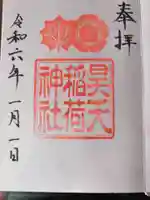 奉拝
昊天
稲荷
神社
令和六年 一月一日